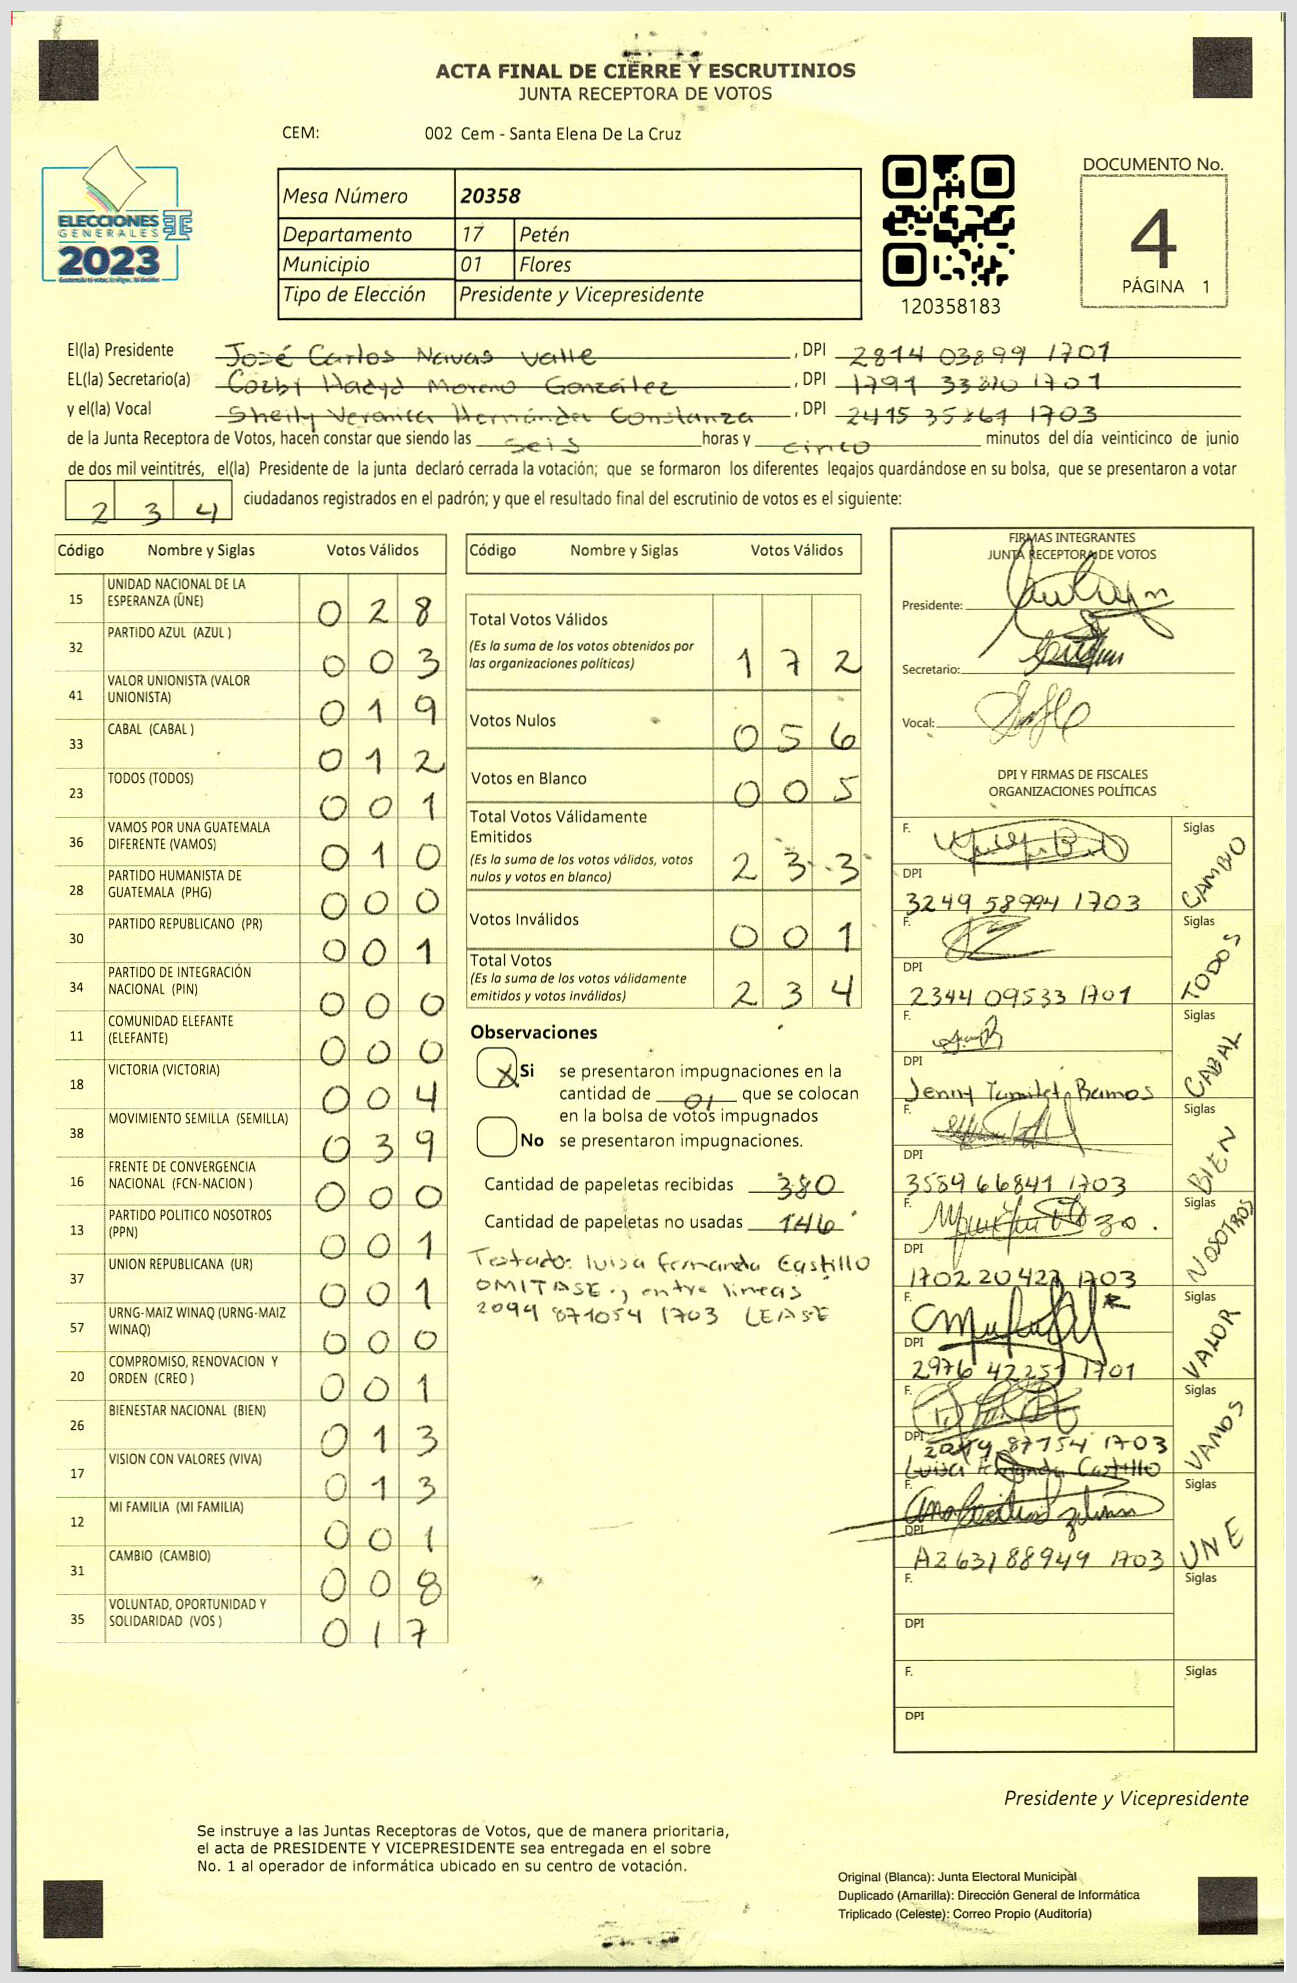 ACTA FINAL DE CIERRE Y ESCRUTINIOS
JUNTA RECEPTORA DE VOTOS
CEM: 002 Cem - Santa Elena De La Cruz
ELECCIONES
GENERALES
2023
Mesa Número 20358
Departamento 17 Petén
Municipio 01 Flores
Tipo de Elección Presidente y Vicepresidente
120358183
DOCUMENTO No.
4
PÁGINA 1
El(la) Presidente José Carlos Navas Valle, DPI 2814 03899 1701
EL(la) Secretario(a) Moreno González, DPI 1791 1701
y el(la) Vocal Sheily Veronica Hernández Constanza, DPI 2415 1703
de la Junta Receptora de Votos, hacen constar que siendo las seis horas y cinco minutos del día veinticinco de junio
de dos mil veintitrés, el(la) Presidente de la junta declaró cerrada la votación; que se formaron los diferentes legajos quardándose en su bolsa, que se presentaron a votar
2 3 4 ciudadanos registrados en el padrón; y que el resultado final del escrutinio de votos es el siguiente:
Código Nombre y Siglas Votos Válidos
15 UNIDAD NACIONAL DE LA
ESPERANZA (UNE) 0 2 8
32 PARTIDO AZUL (AZUL ) 0 0 3
41 VALOR UNIONISTA (VALOR
UNIONISTA) 0 1 9
33 CABAL (CABAL ) 0 1 2
23 TODOS (TODOS) 0 0 1
36 VAMOS POR UNA GUATEMALA
DIFERENTE (VAMOS) 0 1 0
28 PARTIDO HUMANISTA DE
GUATEMALA (PHG) 0 0 0
30 PARTIDO REPUBLICANO (PR) 0 0 1
34 PARTIDO DE INTEGRACIÓN
NACIONAL (PIN) 0 0 0
11 COMUNIDAD ELEFANTE
(ELEFANTE) 0 0 0
18 VICTORIA (VICTORIA) 0 0 4
38 MOVIMIENTO SEMILLA (SEMILLA) 0 3 9
16 FRENTE DE CONVERGENCIA
NACIONAL (FCN-NACION ) 0 0 0
13 PARTIDO POLITICO NOSOTROS
(PPN) 0 0 1
37 UNION REPUBLICANA (UR) 0 0 1
57 URNG-MAIZ WINAQ (URNG-MAIZ
WINAQ) 0 0 0
20 COMPROMISO, RENOVACION Y
ORDEN (CREO ) 0 0 1
26 BIENESTAR NACIONAL (BIEN) 0 1 3
17 VISION CON VALORES (VIVA) 0 1 3
12 MI FAMILIA (MI FAMILIA) 0 0 1
31 CAMBIO (CAMBIO) 0 0 8
35 VOLUNTAD, OPORTUNIDAD Y
SOLIDARIDAD (VOS ) 0 1 7
Código Nombre y Siglas Votos Válidos
Total Votos Válidos
(Es la suma de los votos obtenidos por
las organizaciones políticas) 1 7 2
Votos Nulos 0 5 6
Votos en Blanco 0 0 5
Total Votos Válidamente
Emitidos
(Es la suma de los votos válidos, votos
nulos y votos en blanco) 2 3 3
Votos Inválidos 0 0 1
Total Votos
(Es la suma de los votos válidamente
emitidos y votos inválidos) 2 3 4
Observaciones
X Si se presentaron impugnaciones en la
cantidad de 01 que se colocan
en la bolsa de votos impugnados
No se presentaron impugnaciones.
Cantidad de papeletas recibidas 380
Cantidad de papeletas no usadas 146
Testado: luisa fernanda Castillo
OMITASE, entre lineas
2094 871054 1703 LEASE
FIRMAS INTEGRANTES
JUNTA RECEPTORA DE VOTOS
Presidente:
Secretario:
Vocal:
DPI Y FIRMAS DE FISCALES
ORGANIZACIONES POLÍTICAS
F. Siglas CAMBIO
DPI
3249 58994 1703
F. Siglas TODOS
DPI
2344 09533 1701
F. Siglas CABAL
DPI
Jenny Ramos
F. Siglas BIEN
DPI
3589 66841 1703
F. Siglas NOSOTROS
DPI
1702 20427 1703
F. Siglas VALOR
DPI
2976 42251 1701
F. Siglas VAMOS
DPI
87154 1703
Luisa Fernanda Castillo
F. Siglas UNE
DPI
A2 63188949 1703
F. Siglas
DPI
F. Siglas
DPI
Presidente y Vicepresidente
Se instruye a las Juntas Receptoras de Votos, que de manera prioritaria,
el acta de PRESIDENTE Y VICEPRESIDENTE sea entregada en el sobre
No. 1 al operador de informática ubicado en su centro de votación.
Original (Blanca): Junta Electoral Municipal
Duplicado (Amarilla): Dirección General de Informática
Triplicado (Celeste): Correo Propio (Auditoría)